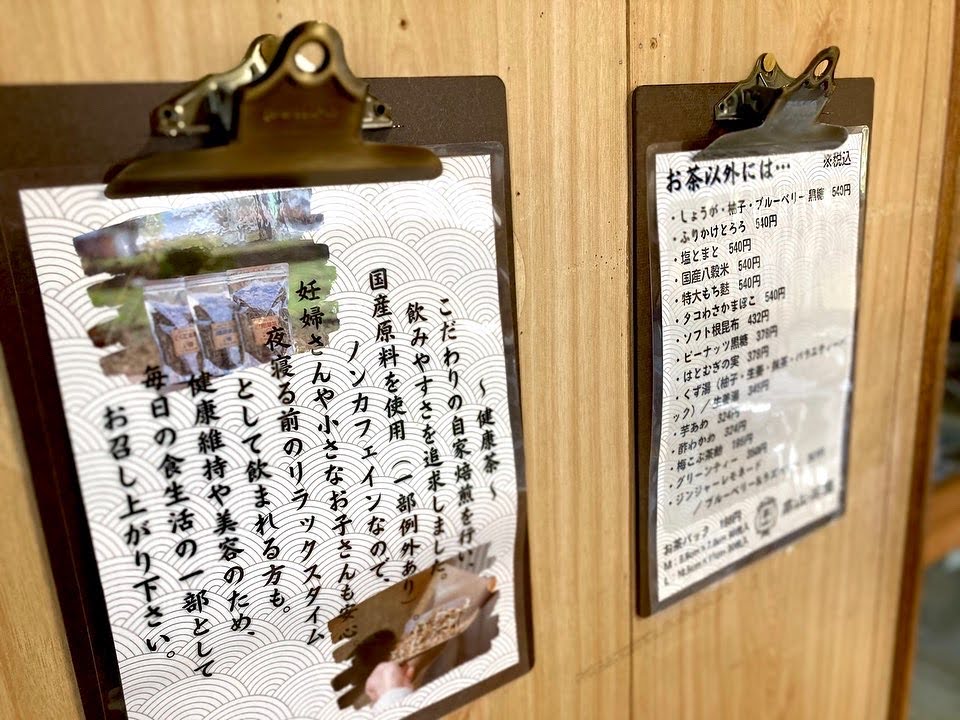 ～健康茶～
こだわりの自家焙煎を行い、
飲みやすさを追求しました。
国産原料を使用（一部例外あり）
ノンカフェインなので、
妊婦さんや小さなお子さんも安心
夜寝る前のリラックスタイム
として飲まれる方も。
健康維持や美容のため、
毎日の食生活の一部として
お召し上がり下さい。
お茶以外には…
※税込
・しょうが・柚子・ブルーベリー 黒糖 540円
・ふりかけとろろ 540円
・塩とまと 540円
・国産八穀米 540円
・特大もち麩 540円
・タコわさかまぼこ 540円
・ソフト根昆布 432円
・ピーナッツ黒糖 378円
・はとむぎの実 378円
・くず湯（柚子・生姜・抹茶・バラエティーパ
ック）／生姜湯 345円
・芋あめ 324円
・酢わかめ 324円
・梅こぶ茶飴 195円
・グリーンティー
・ジンジャーレモネード
／ブルーベリー&
お茶パック
M：
L：